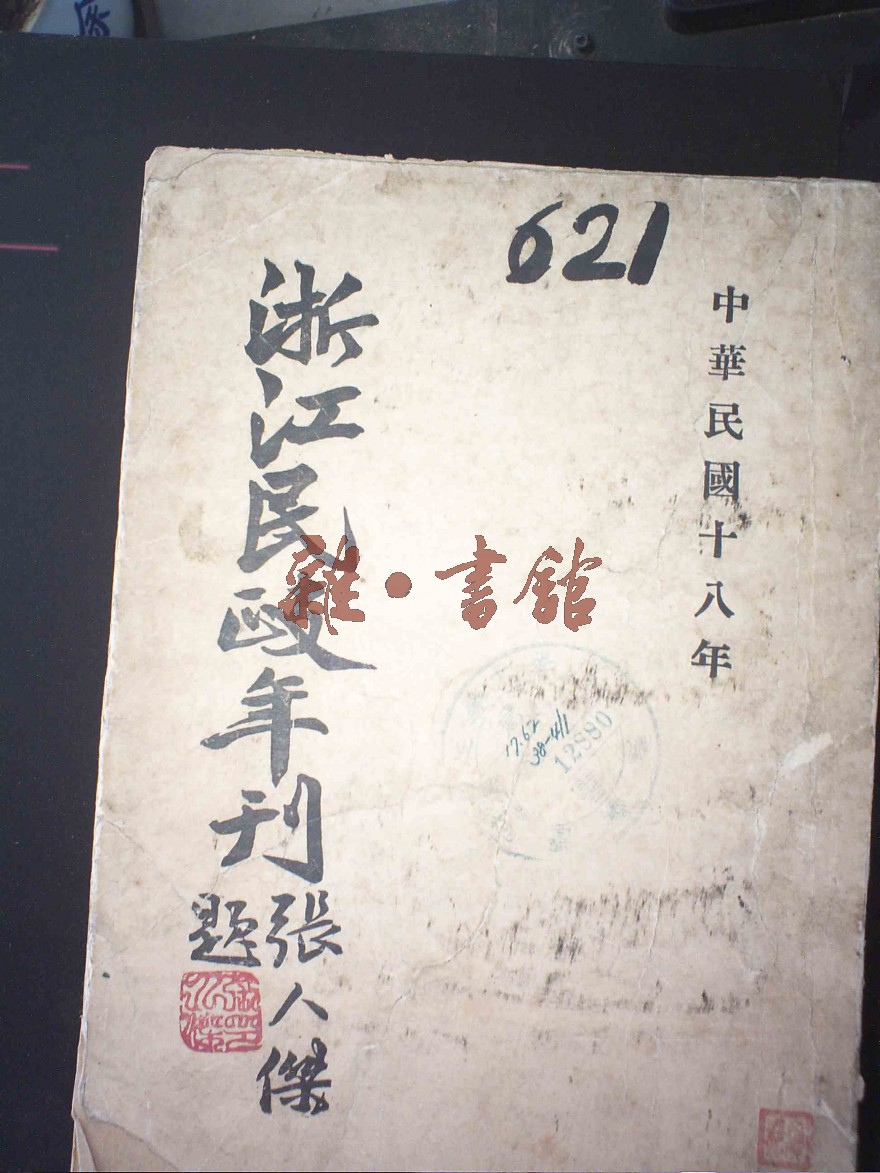 621
中華民國十八年
浙江民政年刊
張人傑
題
雜·書館
12880
17.62